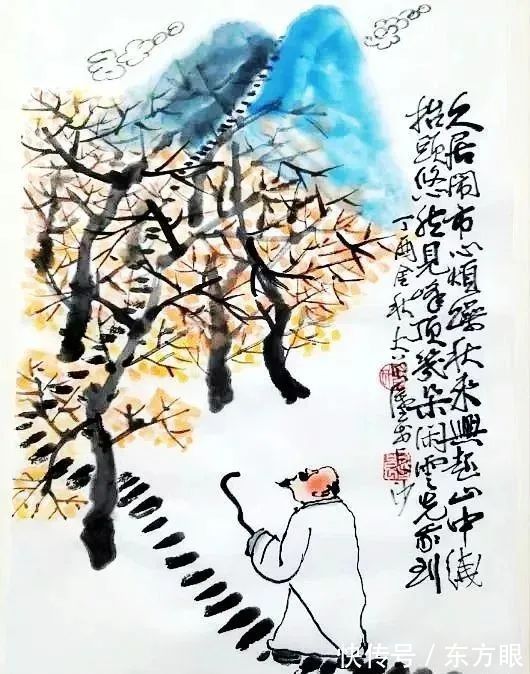 久居闹市心烦躁秋来兴起山中绕
抬头悠然见峰顶几朵闲云先我到
丁酉金秋
快传号/东方眼